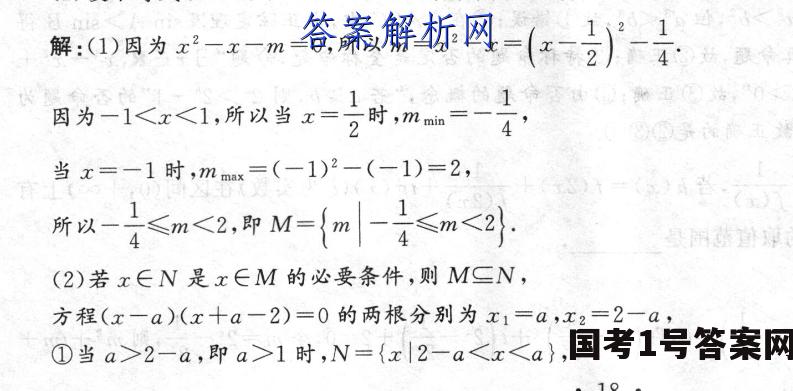 解:(1)因为 x²-x-m=0,所以 m=x²-x=(x-1/2)²-1/4.
答案解析网
因为-1<x<1,所以当 x=1/2时,m min=-1/4,
当 x=-1 时,m max=(-1)²-(-1)=2,
所以-1/4≤m<2,即 M={m|-1/4≤m<2}.
(2)若 x∈N 是 x∈M 的必要条件,则 M⊆N,
方程(x-a)(x+a-2)=0 的两根分别为 x₁=a,x₂=2-a,
①当 a>2-a,即 a>1 时,N={x|2-a<x<a},
国考1号答案网
· 18 ·